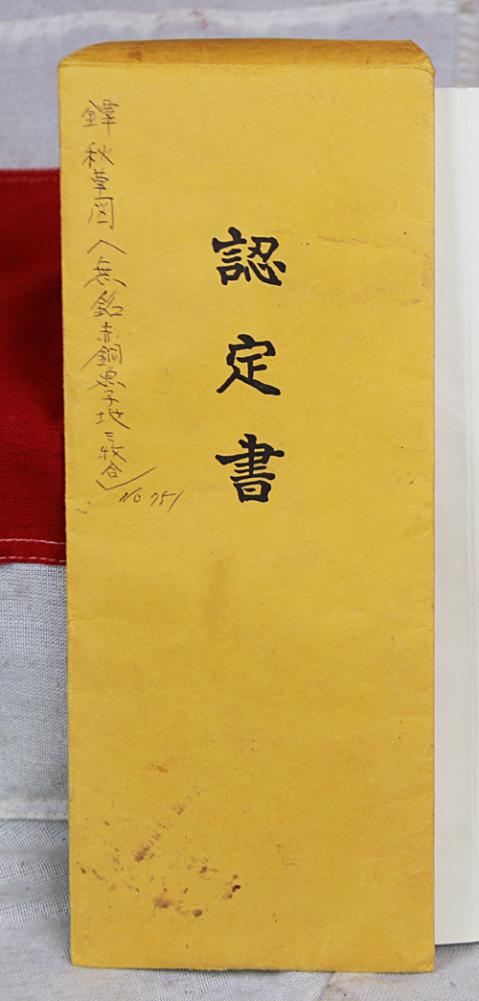 認定書
鐔 秋草図 (無銘赤銅魚子地三枚合)
No 751